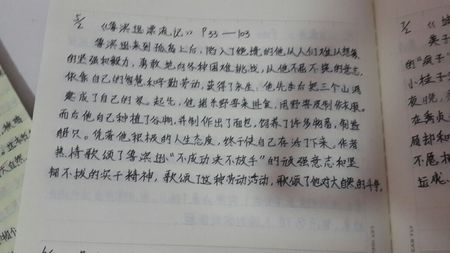 5/2 《鲁滨逊漂流记》 P33—103
鲁滨逊来到孤岛上后,陷入了绝境的他,从人们难以想象
的坚强和毅力,勇敢地向各种困难挑战,从他不屈不挠的意志,
依靠自己的智慧和辛勤劳动,获得了永生。他先后把三个山洞
建成了自己的家。起先,他捕杀野兽来进食,用野兽皮制作衣服。
而后他自己种植了谷物,并制作出了面包,饲养了许多动物,制造
船只。凭着他积极的人生态度,终于使自己存活了下来,作者
热情歌颂了鲁滨逊"不成功决不放手"的顽强意志和坚
韧不拔的实干精神,歌颂了这种劳动活动,歌颂了他对大自然的斗争。
《
英子
的"疯子
小桂子
夜晚,
在
局部和
不属相
运成